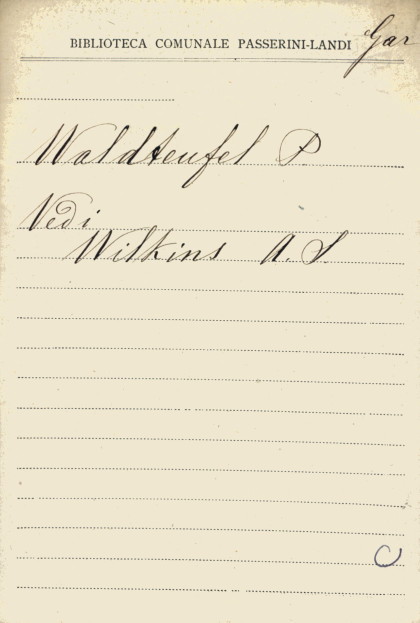 BIBLIOTECA COMUNALE PASSERINI-LANDI Gar
Waldteufel P.
Vedi
Wilkins A. S.
C